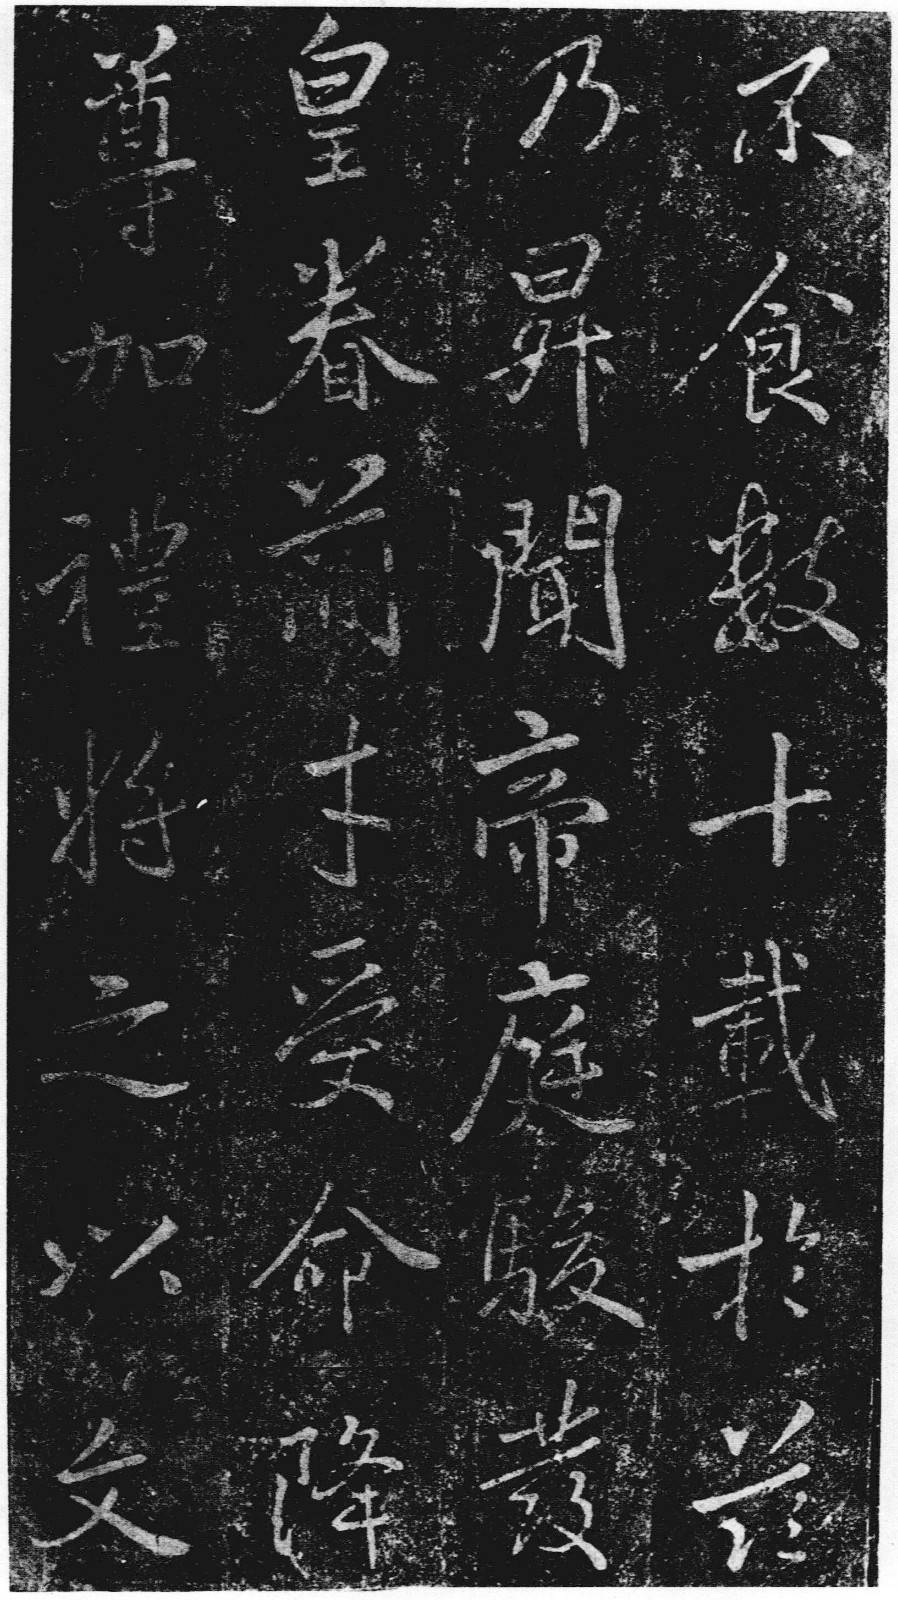 不食數十載於茲
乃昇聞帝庭駿發
皇眷前才受命降
尊加禮將之以文